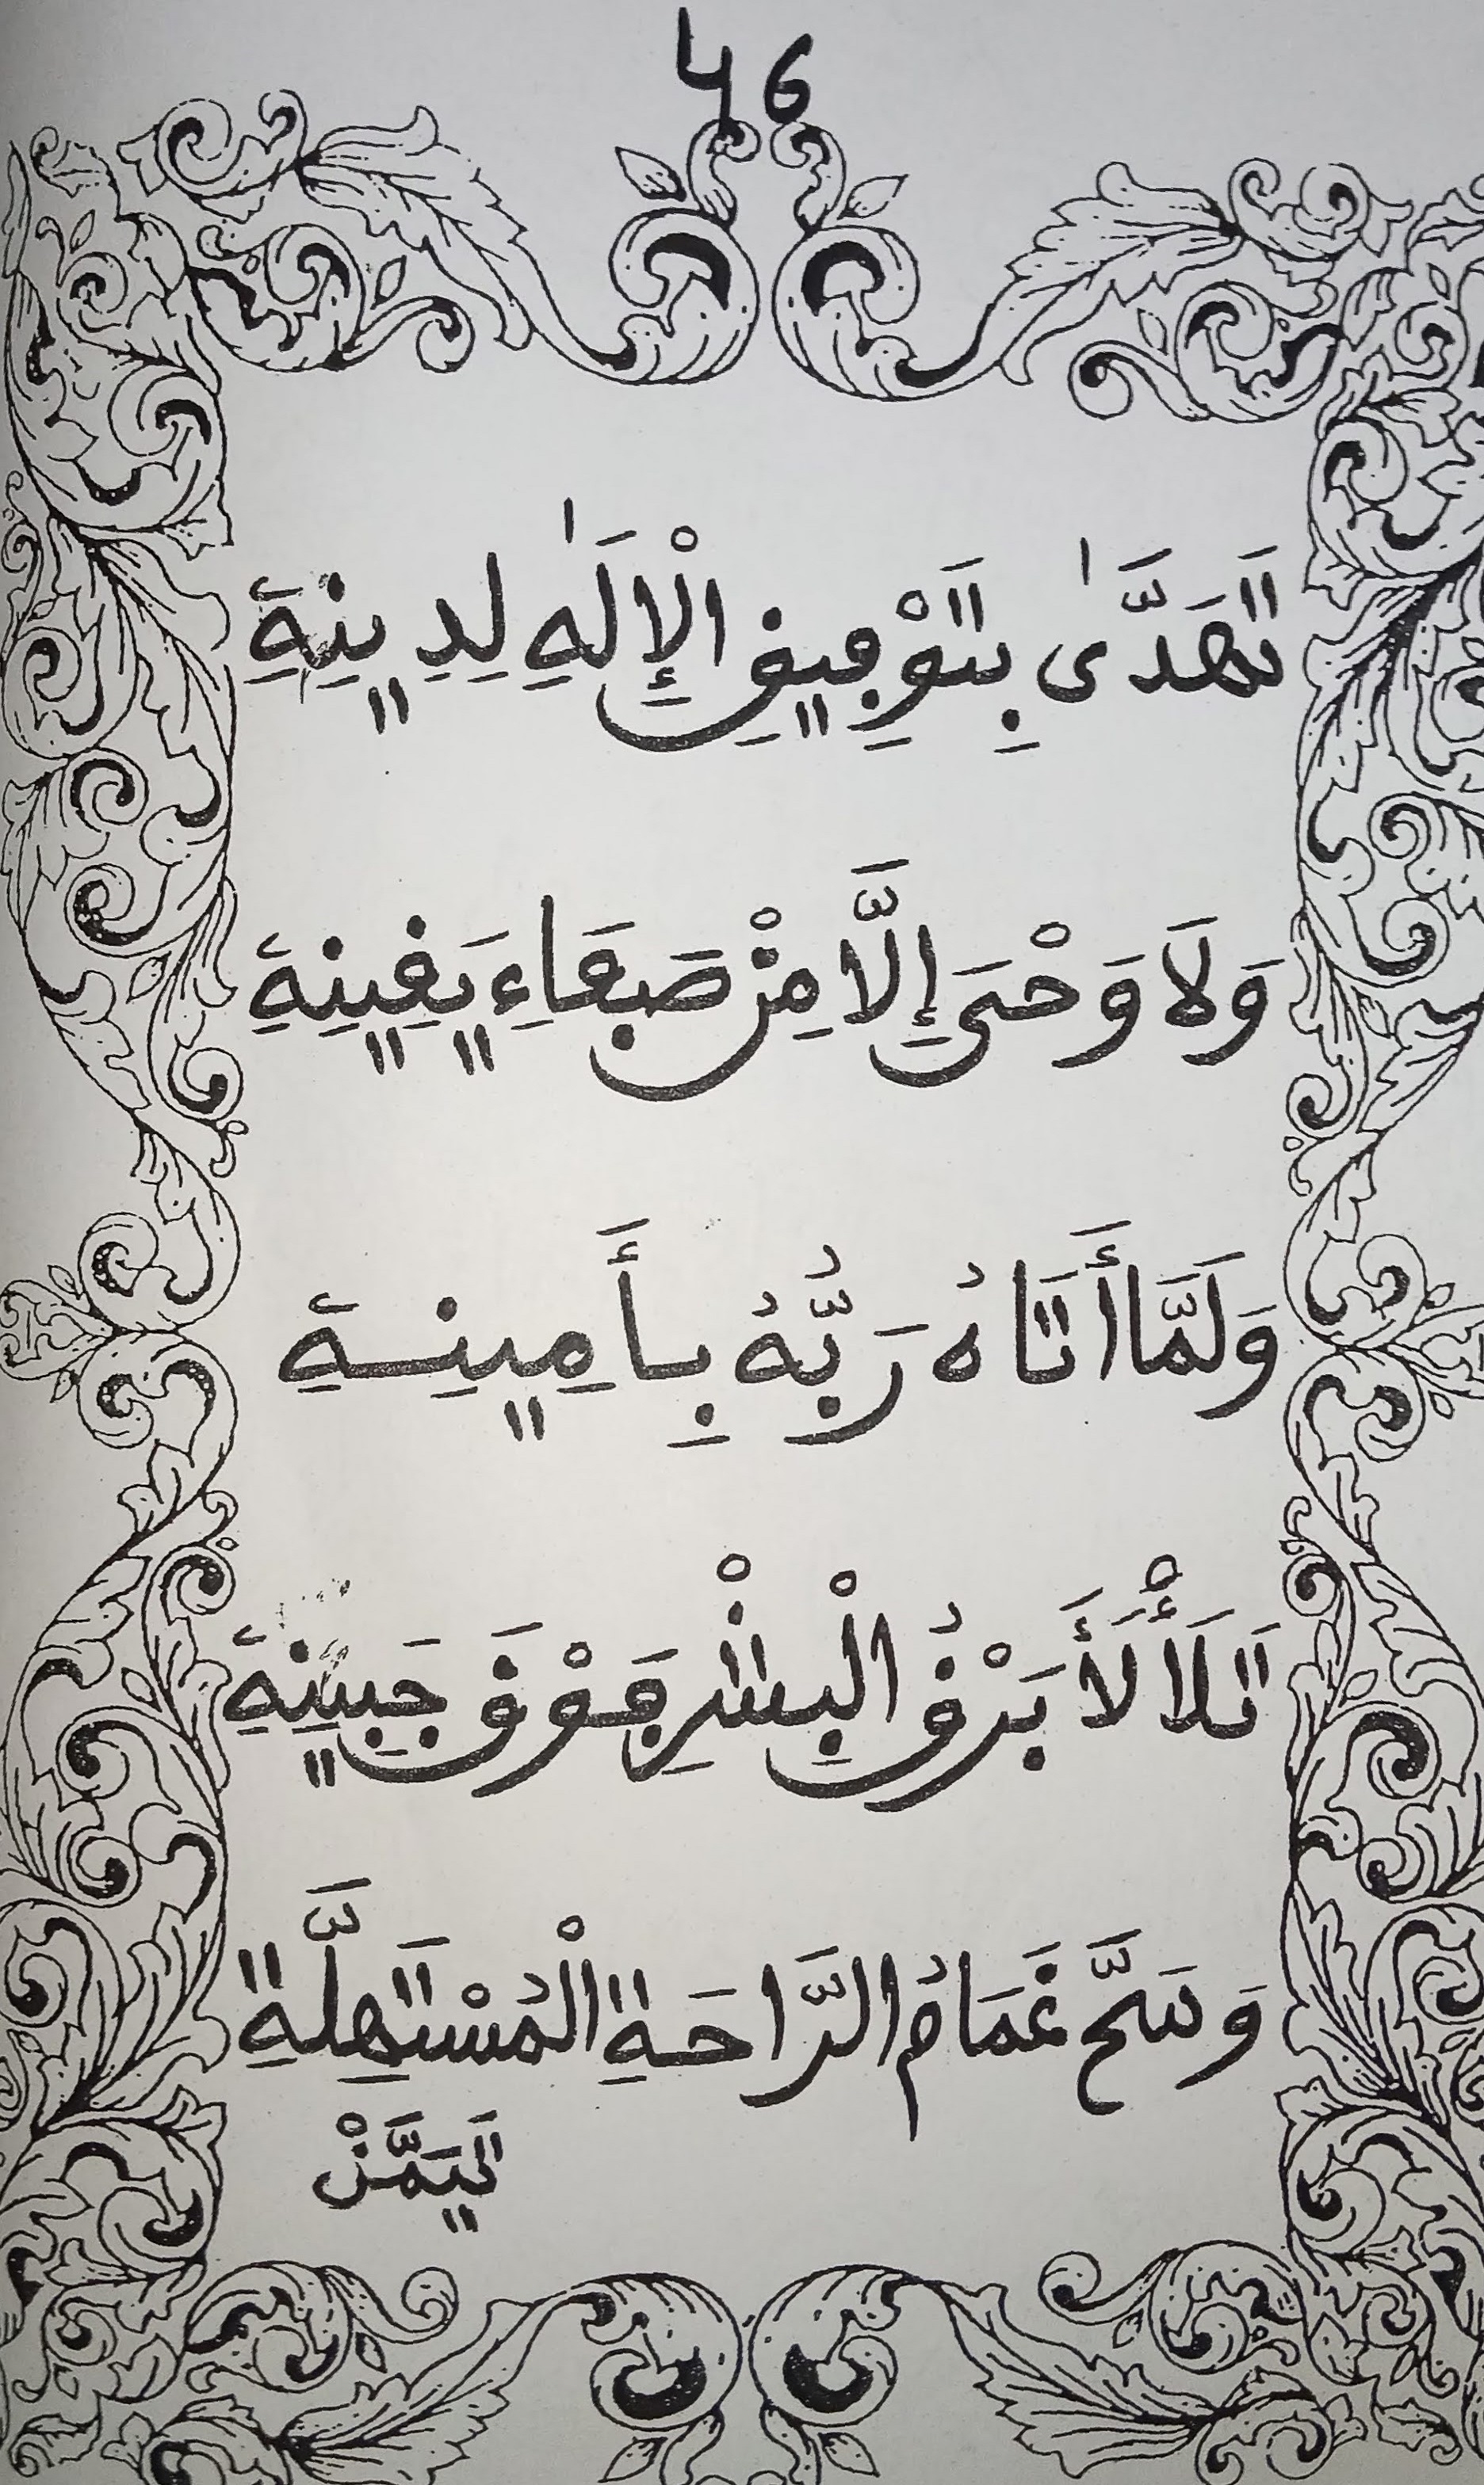 46
تَهَدَّىٰ بِتَوْفِيقِ الْإِلَٰهِ لِدِينِهِ
وَلَا وَحْيَ إِلَّا مِنْ صَفَاءِ يَقِينِهِ
وَلَمَّا أَتَاهُ رَبُّهُ بِأَمِينِهِ
تَلَأْلَأَ بَرْقُ الْبِشْرِ فَوْقَ جَبِينِهِ
وَسَحَّ غَمَامُ الرَّاحَةِ الْمُسْتَهِلَّةِ
تَيَمَّنْ